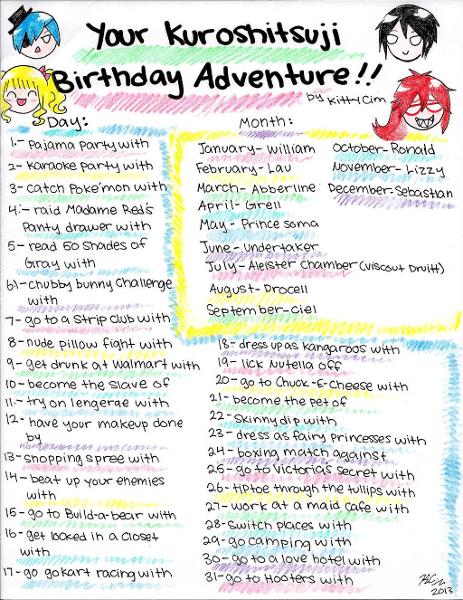 Your Kuroshitsuji
Birthday Adventure!!
by Kitty Cim
Day:
1- Pajama Party with
2- Karaoke Party with
3- Catch Poke'mon with
4- raid Madame Red's
Panty drawer with
5- read 50 Shades of
Gray with
6) - chubby bunny challenge
with
7- go to a Strip Club with
8- nude pillow fight with
9- get drunk at Walmart with
10- become the slave of
11- try on lengerae with
12- have your makeup done
by
13- shopping spree with
14- beat up your enemies
with
15- go to Build-a-bear with
16- get locked in a closet
with
17- go gokart racing with
Month:
January- William
February- Lau
March- Abberline
April- Grell
May- Prince Soma
June- Undertaker
July- Aleister Chamber (Viscout Druitt)
August- Drocell
September- Ciel
October- Ronald
November- Lizzy
December- Sebastian
18- dress up as kangaroos with
19- lick Nutella off
20- go to Chuck-E-Cheese with
21- become the pet of
22- Skinny dip with
23- dress as fairy princesses with
24- boxing match against
25- go to Victoria's secret with
26- tiptoe through the tullips with
27- work at a maid cafe with
28- Switch places with
29- go camping with
30- go to a love hotel with
31- go to Hooters with
2013